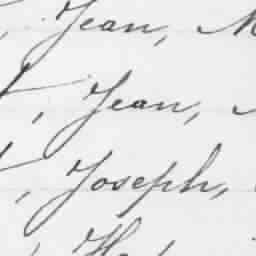 , Jean, M
, Jean,
, Joseph,